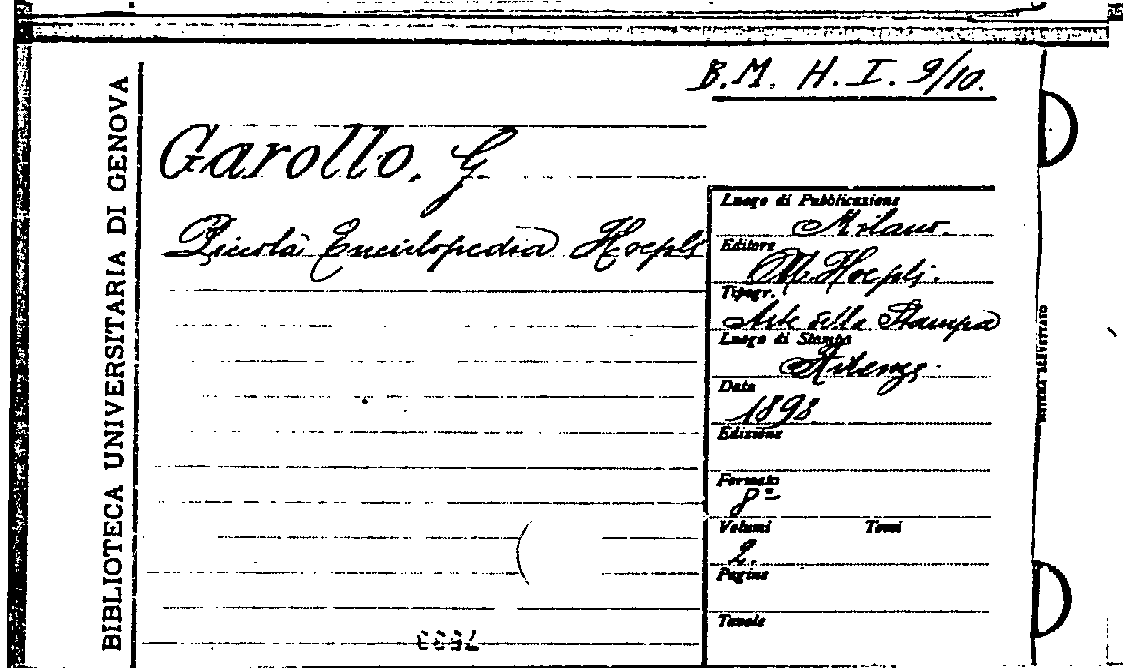 B.M. H. I. 9/10.
BIBLIOTECA UNIVERSITARIA DI GENOVA
Garollo. G
Piccola Enciclopedia Hoepli
Luogo di Pubblicazione
Milano.
Editore
M. Hoepli.
Tipogr.
Arte della Stampa
Luogo di Stampa
Firenze.
Data
1898
Edizione
Formato
8º
Volumi Tomi
2.
Pagine
Tavole